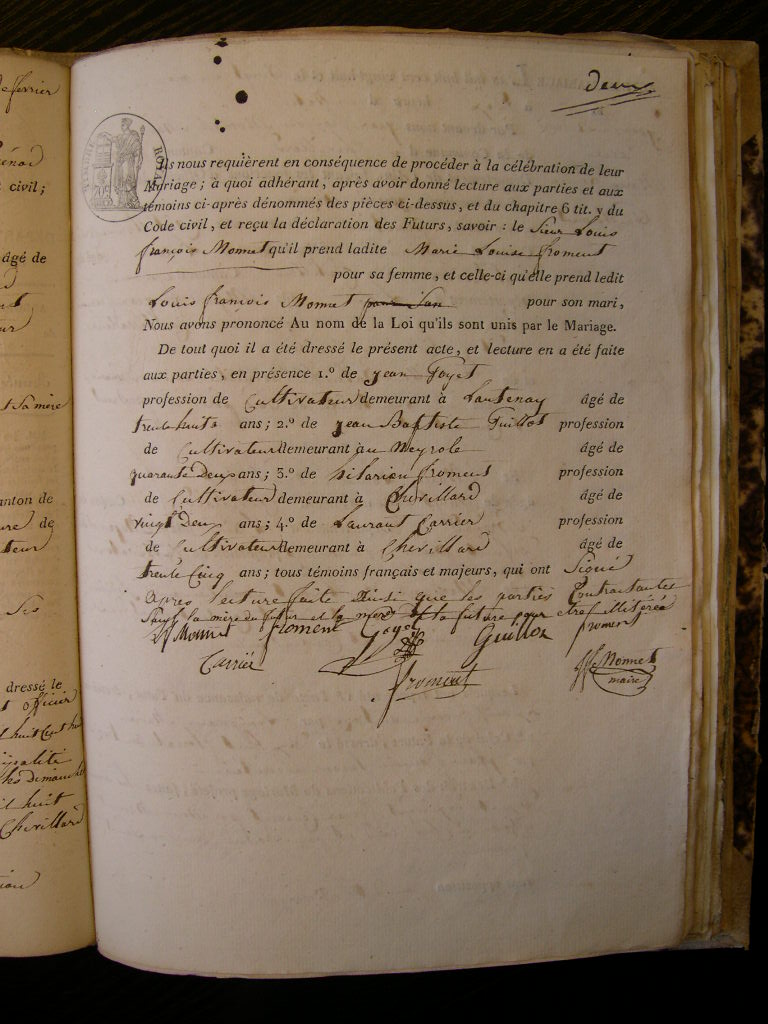 deux
Ils nous requièrent en conséquence de procéder à la célébration de leur
Mariage ; à quoi adhérant, après avoir donné lecture aux parties et aux
témoins ci-après dénommés des pièces ci-dessus, et du chapitre 6 tit. v du
Code civil, et reçu la déclaration des Futurs, savoir : le Sieur Louis
françois Monnet qu'il prend ladite Marie Louise froment
pour sa femme, et celle-ci qu'elle prend ledit
Louis françois Monnet pour son mari,
Nous avons prononcé Au nom de la Loi qu'ils sont unis par le Mariage.
De tout quoi il a été dressé le présent acte, et lecture en a été faite
aux parties, en présence 1.º de jean Goyet
profession de Cultivateur demeurant à Lantenay âgé de
trente huit ans ; 2.º de jean Baptiste Guillot profession
de Cultivateur demeurant au Meyrole âgé de
quarante Deux ans ; 3.º de hilarien froment profession
de Cultivateur demeurant à Chevillard âgé de
vingt Deux ans ; 4.º de Laurant Carrier profession
de Cultivateur demeurant à Chevillard âgé de
trente Cinq ans ; tous témoins français et majeurs, qui ont Signé
après lecture faite Ainsi que les parties Contractantes
Sauf la mère du futur et la future pour etre illitérée
Monnet froment Goyet Guillot froment
Carrier
froment
Monnet
maire
de fevrier
civil ;
âgé de
et Sa mère
canton de
de
teur
Ses
dressé le
officier
huit Cent
huit
Chevillard